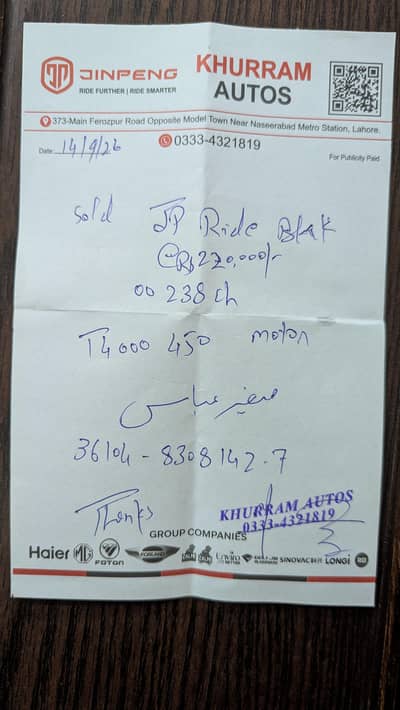 JINPENG
RIDE FURTHER | RIDE SMARTER
KHURRAM
AUTOS
373-Main Ferozpur Road Opposite Model Town Near Naseerabad Metro Station, Lahore.
Date: 14/9/26
0333-4321819
For Publicity Paid
Sold JP Ride Blak
@Rs 220,000/-
00 238 ch
T4000 450 moton
صغیر عباس
36104 - 8308142-7
Thanks
KHURRAM AUTOS
0333-4321819
GROUP COMPANIES
Haier MG FOTON FORLAND SINOVAC LONGi